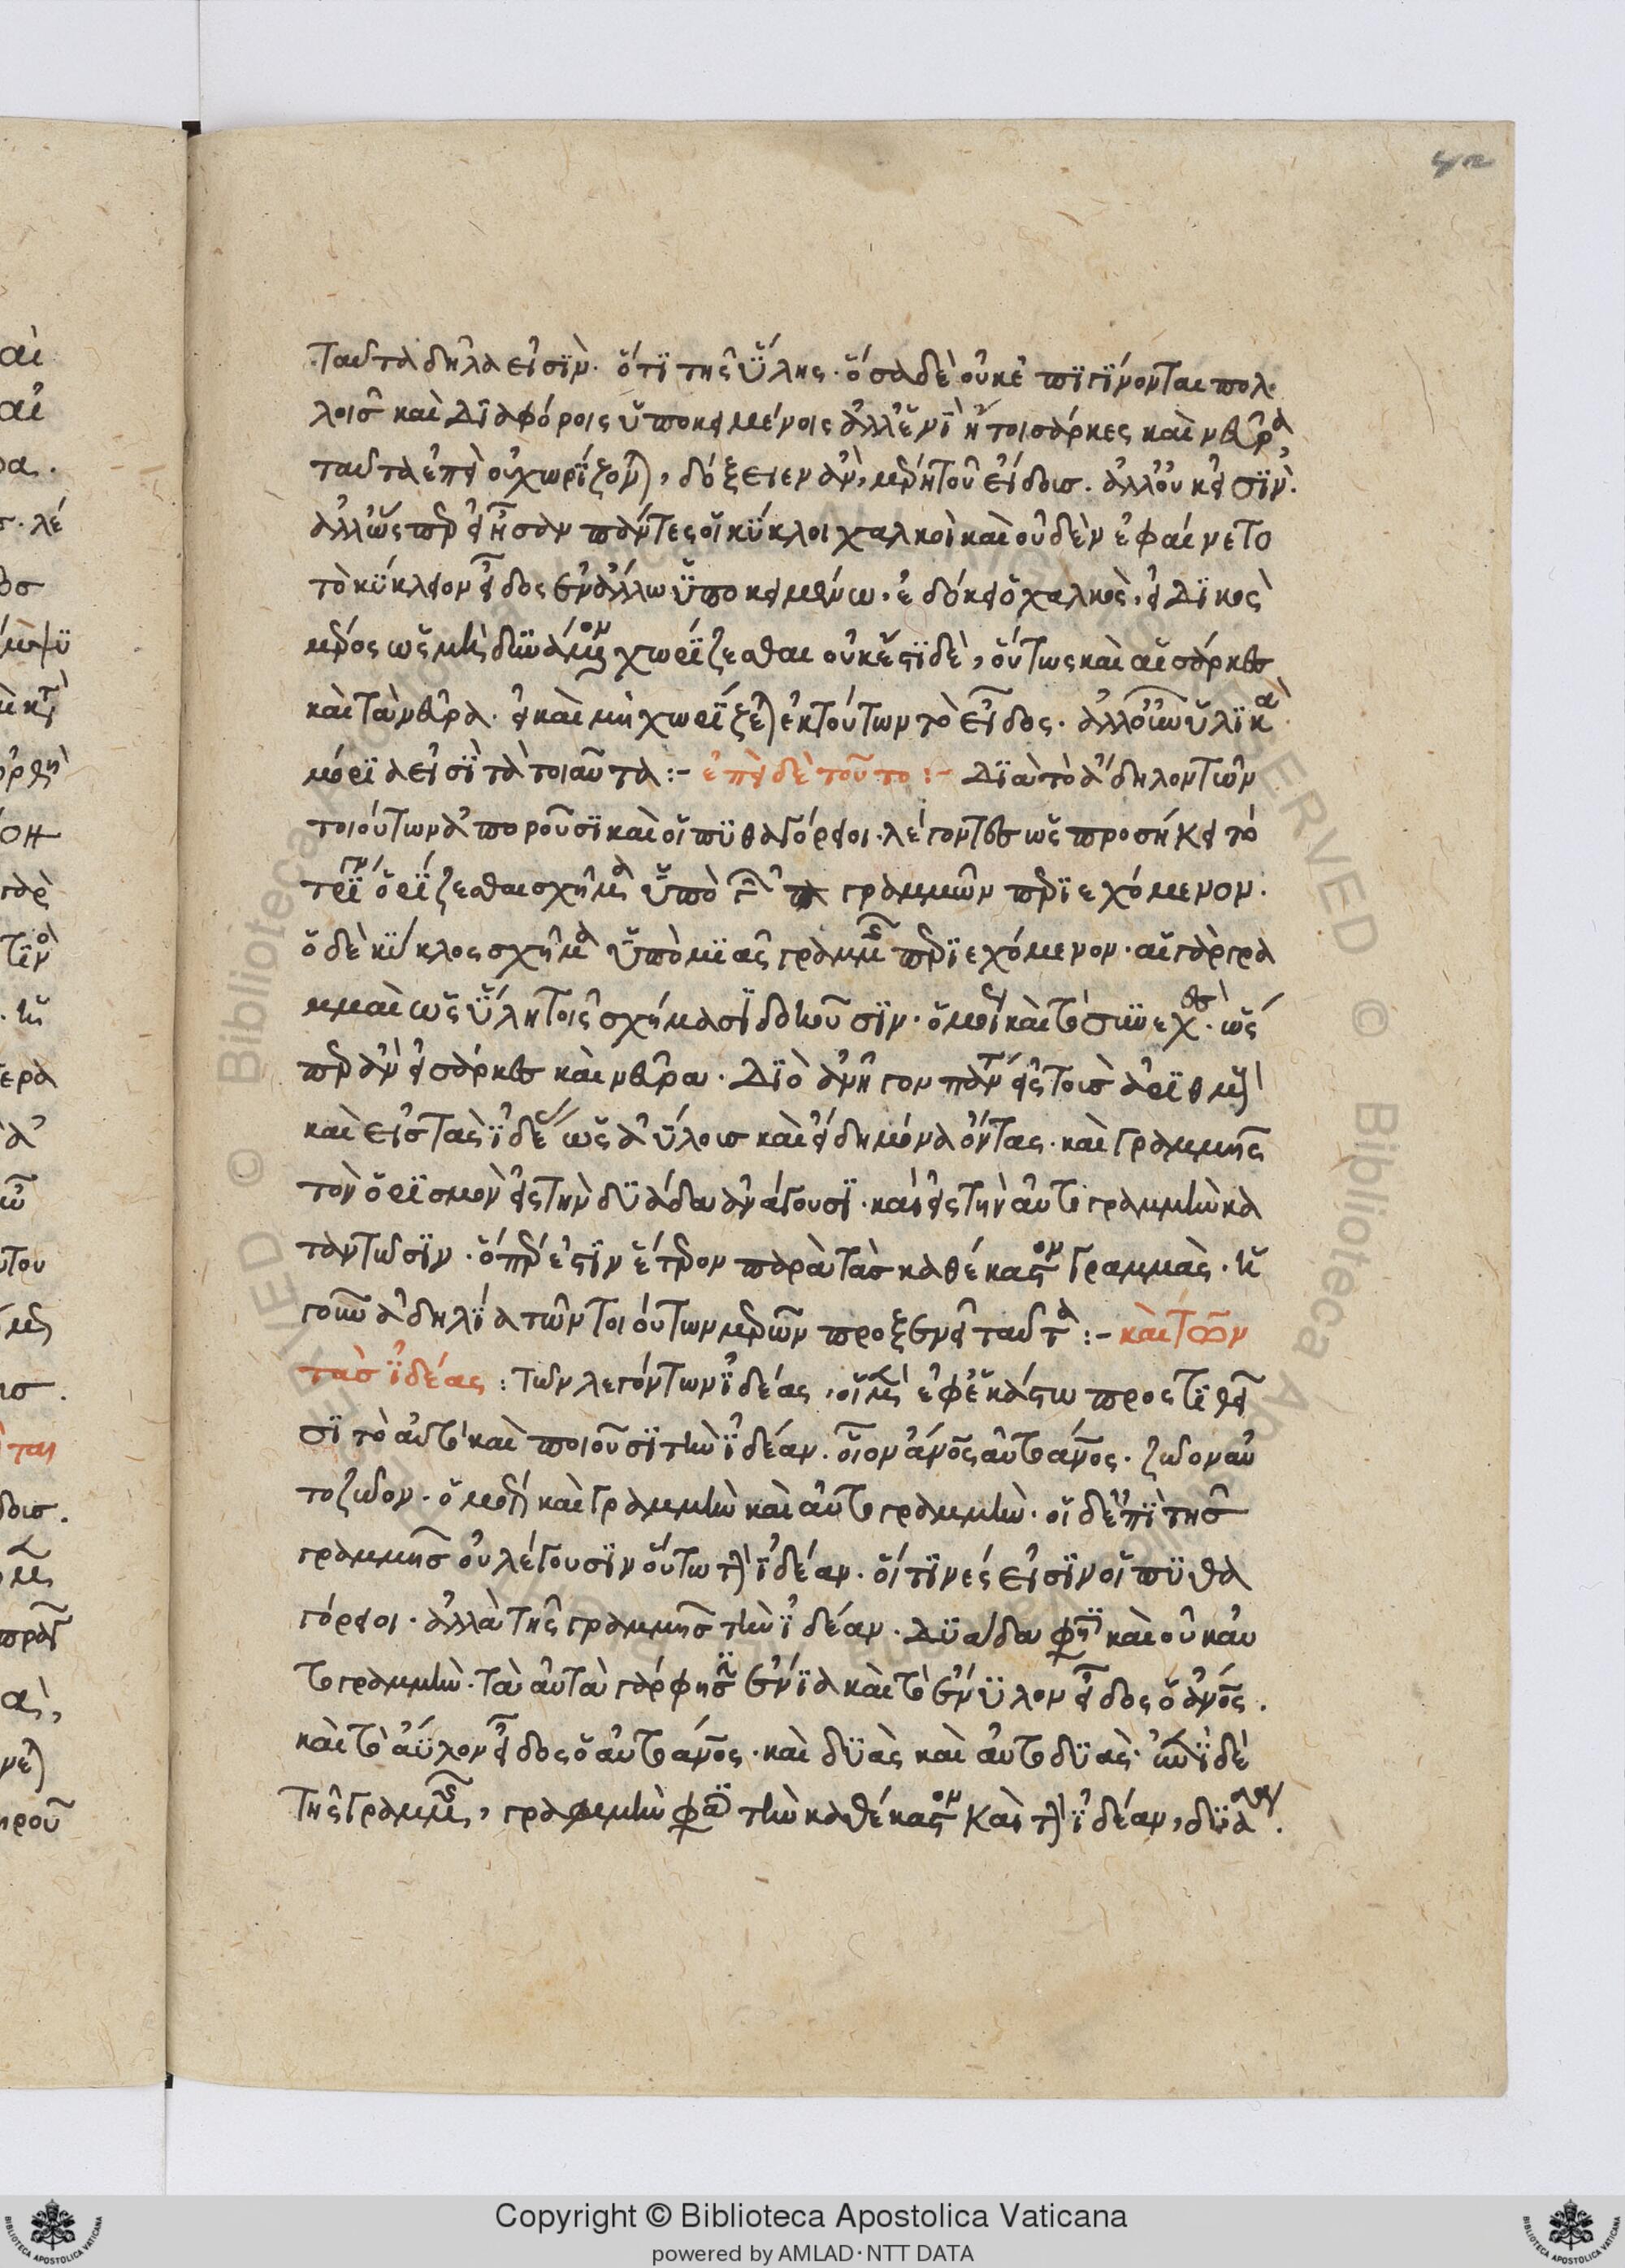 ταῦτα δῆλα εἰσὶν. ὅτι τῆς ὕλης. ὅσα δὲ οὐκ ἐπιγίνονται πολ
λοῖς καὶ διαφόροις ὑποκειμένοις ἀλλ' ἑνὶ ἤτοι σάρκες καὶ νεῦρα,
ταῦτα ἐπεὶ οὐ χωρίζονται, δόξειεν ἂν, μέρη τοῦ εἴδους. ἀλλ' οὐκ εἰσίν.
ἀλλ' ὥσπερ εἰ ἦσαν πάντες οἱ κύκλοι χαλκοῖ καὶ οὐδὲν ἐφαίνετο
τὸ κύκλειον εἶδος ἐν ἄλλω ὑποκειμένω. ἐδόκει ὁ χαλκὸς, εἰδικὸς
μέρος ὡς μὴ δυνάμενον χωρίζεσθαι οὐκ ἔστι δὲ, οὕτως καὶ αἱ σάρκες
καὶ τὰ νεῦρα. εἰ καὶ μὴ χωρίζεται ἐκ τούτων τὸ εἶδος. ἀλλ' οὖν ὑλικὰ
μόρια εἰσὶ τὰ τοιαῦτα :- ἐπεὶ δὲ τοῦτο :- Διὰ τὸ ἄδηλον τῶν
τοιούτων ἀποροῦσι καὶ οἱ πυθαγόρειοι. λέγοντες ὡς προσήκει τὸ
τρίγωνον ὁρίζεσθαι σχῆμα ὑπὸ γραμμῶν περιεχόμενον.
ὁ δὲ κύκλος σχῆμα ὑπὸ μιᾶς γραμμῆς περιεχόμενον. αἱ γὰρ γρα
μμαὶ ὡς ὕλη τοῖς σχήμασι δοκοῦσιν. ὁμοίως καὶ τὸ συνεχὲς. ὥς
περ ἂν εἰ σάρκες καὶ νεῦρα. Διὸ ἀνῆγον πάντα εἰς τοὺς ἀριθμοὺς
καὶ εἰς τὰς ἰδέας ὡς ἀΰλους καὶ εἴδη μόνα ὄντας. καὶ γραμμῆς
τὸν ὁρισμὸν εἰς τὴν δυάδα ἀνάγουσι. καὶ εἰς τὴν αὐτογραμμὴν κα
ταντῶσιν. ὅπερ ἐστὶν ἕτερον παρὰ τὰς καθέκαστον γραμμὰς. ἡ
γοῦν ἀδηλία τῶν τοιούτων μερῶν προξενεῖ ταῦτα :- καὶ τῶν
τὰς ἰδέας : τῶν λεγόντων ἰδέας, οἱ μὲν ἐφ' ἑκάστω προστιθεῖ
σι τὸ αὐτὸ καὶ ποιοῦσι τὴν ἰδέαν. οἷον ἄνος αὐτοάνος. ζῶον αὐ
τοζῶον. ὁμοίως καὶ γραμμὴν καὶ αὐτογραμμὴν. οἱ δὲ ἐπὶ τῆς
γραμμῆς οὐ λέγουσιν οὕτω τὴν ἰδέαν. οἵτινές εἰσιν οἱ πυθα
γόρειοι. ἀλλὰ τῆς γραμμῆς τὴν ἰδέαν. Δυάδα φησὶ καὶ οὐκ αὐ
τογραμμὴν. τὰ αὐτὰ γάρ φησιν ἔνια καὶ τὸ ἔνυλον εἶδος ὁ ἄνος.
καὶ τὸ ἄϋλον εἶδος ὁ αὐτοάνος. καὶ δυὰς καὶ αὐτοδυὰς. ἐπὶ δὲ
τῆς γραμμῆς, γραμμὴν φασὶ τὴν καθέκαστον καὶ τὴν ἰδέαν, δυάδα.